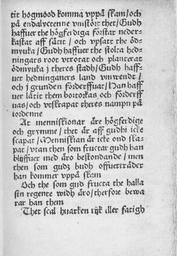 tit hogmodh komma vppå skam / och
på endalyctenne vmstört thet / Gudh
haffuer the högferdiga förstar neder-
kastat aff säät / och vpsatt the öd-
miuka / Gudh haffuer the stolta hed-
ningars root vtrotat och planterat
ödmiuka j theres stadh / Gudh haff-
uer hedningarnes land vmwendt /
och j grunden förderffuat / Han haff
uer låtit them bortorkas och förderff
uas / och vtslarpat theres nampn på
iordenne
At menniskionar äre högferdige
och grymme / thet är aff gudhi icke
skapat / Menniskian är icke ond ska-
pat / vtan then som fructar gudh han
bliffuer med äro bestondande / men
then som gudz budh offuerträder
han kommer vppå skam
Och the som gud fructa the halla
sin regente widh äro / therfore bewa
rar han them
Thet scal hwarken rijk eller fatigh